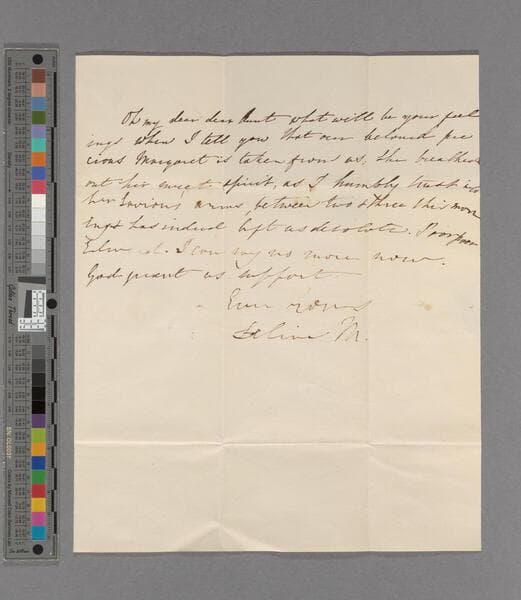 Oh my dear dear Aunt what will be your feel
ings when I tell you that our beloved pre
cious Margaret is taken from us, She breathed
out her sweet spirit, as I humbly trust into
her Saviours arms, between two & three this morn
ing & has indeed left us desolate. Poor poor
I can say no more now.
God grant us support
Ever yours
M.